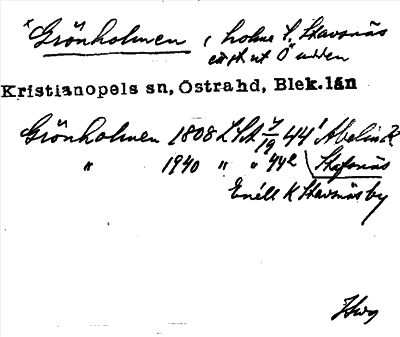 × Grönholmen, holme i Stavsnäs
Ö udden
Kristianopels sn, Östrahd, Blek.län
Grönholmen 1808 LSA 7/19 44¹ Abelin K
" 1940 " " 44² Stafsnäs
Enéll K Stavsnäs by
Hwg